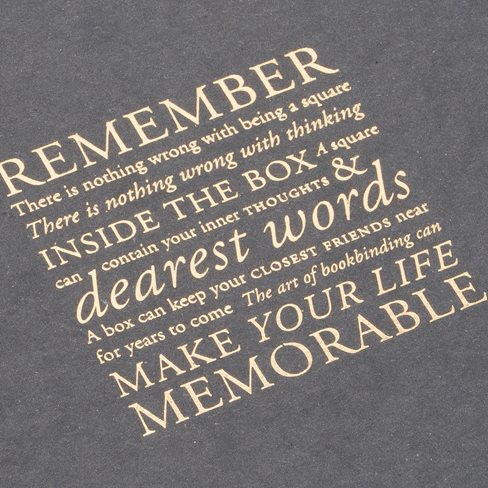 REMEMBER
There is nothing wrong with being a square
There is nothing wrong with thinking
INSIDE THE BOX A square
can contain your inner THOUGHTS &
dearest words
A box can keep your CLOSEST FRIENDS near
for years to come The art of bookbinding can
MAKE YOUR LIFE
MEMORABLE